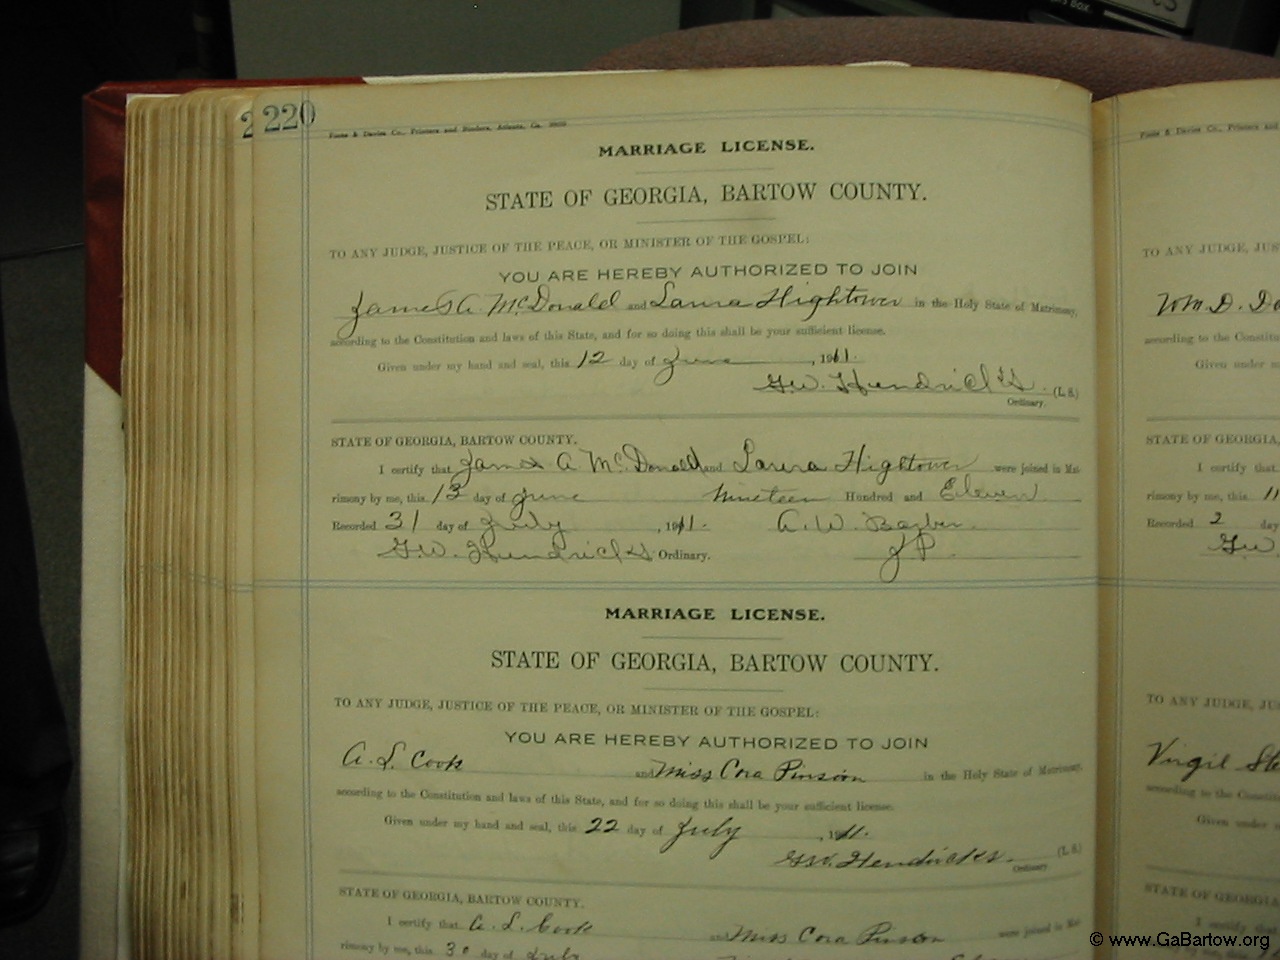 220
Foote & Davies Co., Printers and Binders, Atlanta, Ga.
MARRIAGE LICENSE.
STATE OF GEORGIA, BARTOW COUNTY.
TO ANY JUDGE, JUSTICE OF THE PEACE, OR MINISTER OF THE GOSPEL:
YOU ARE HEREBY AUTHORIZED TO JOIN
James A. McDonald and Laura Hightower in the Holy State of Matrimony,
according to the Constitution and laws of this State, and for so doing this shall be your sufficient license.
Given under my hand and seal, this 12 day of June, 1911.
G.W. Hendricks. (L. S.)
Ordinary.
STATE OF GEORGIA, BARTOW COUNTY.
I certify that James A McDonald and Laura Hightower were joined in Mat-
rimony by me, this 13 day of June Nineteen Hundred and Eleven
Recorded 31 day of July, 1911. A. W. Barber.
G.W. Hendricks Ordinary. J P.
MARRIAGE LICENSE.
STATE OF GEORGIA, BARTOW COUNTY.
TO ANY JUDGE, JUSTICE OF THE PEACE, OR MINISTER OF THE GOSPEL:
YOU ARE HEREBY AUTHORIZED TO JOIN
A. L. Cook and Miss Cora Pinson in the Holy State of Matrimony,
according to the Constitution and laws of this State, and for so doing this shall be your sufficient license.
Given under my hand and seal, this 22 day of July, 1911.
G.W. Hendricks. (L. S.)
Ordinary
STATE OF GEORGIA, BARTOW COUNTY.
I certify that A. L. Cook and Miss Cora Pinson were joined in Mat-
rimony by me, this 30 day of July
Foote & Davies Co., Printers and
TO ANY JUDGE, JUS
Wm. D.
according to the Constitu
Given under m
STATE OF GEORGIA,
I certify that
rimony by me, this 11
Recorded 2 day
G.W.
TO ANY JUDGE, JUS
Virgil
according to the Constitu
Given under
STATE OF GEORGIA
I certify that
© www.GaBartow.org